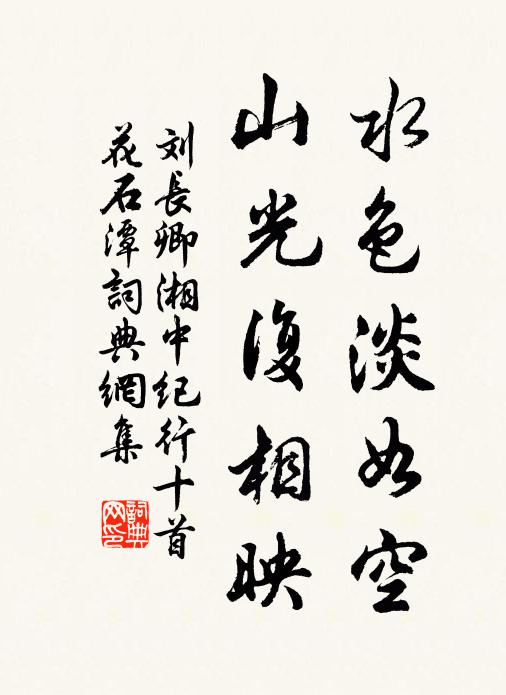 水色淡如空
山光復相映
刘長卿湘中纪行十首
花石潭詞典網集
詞典网印